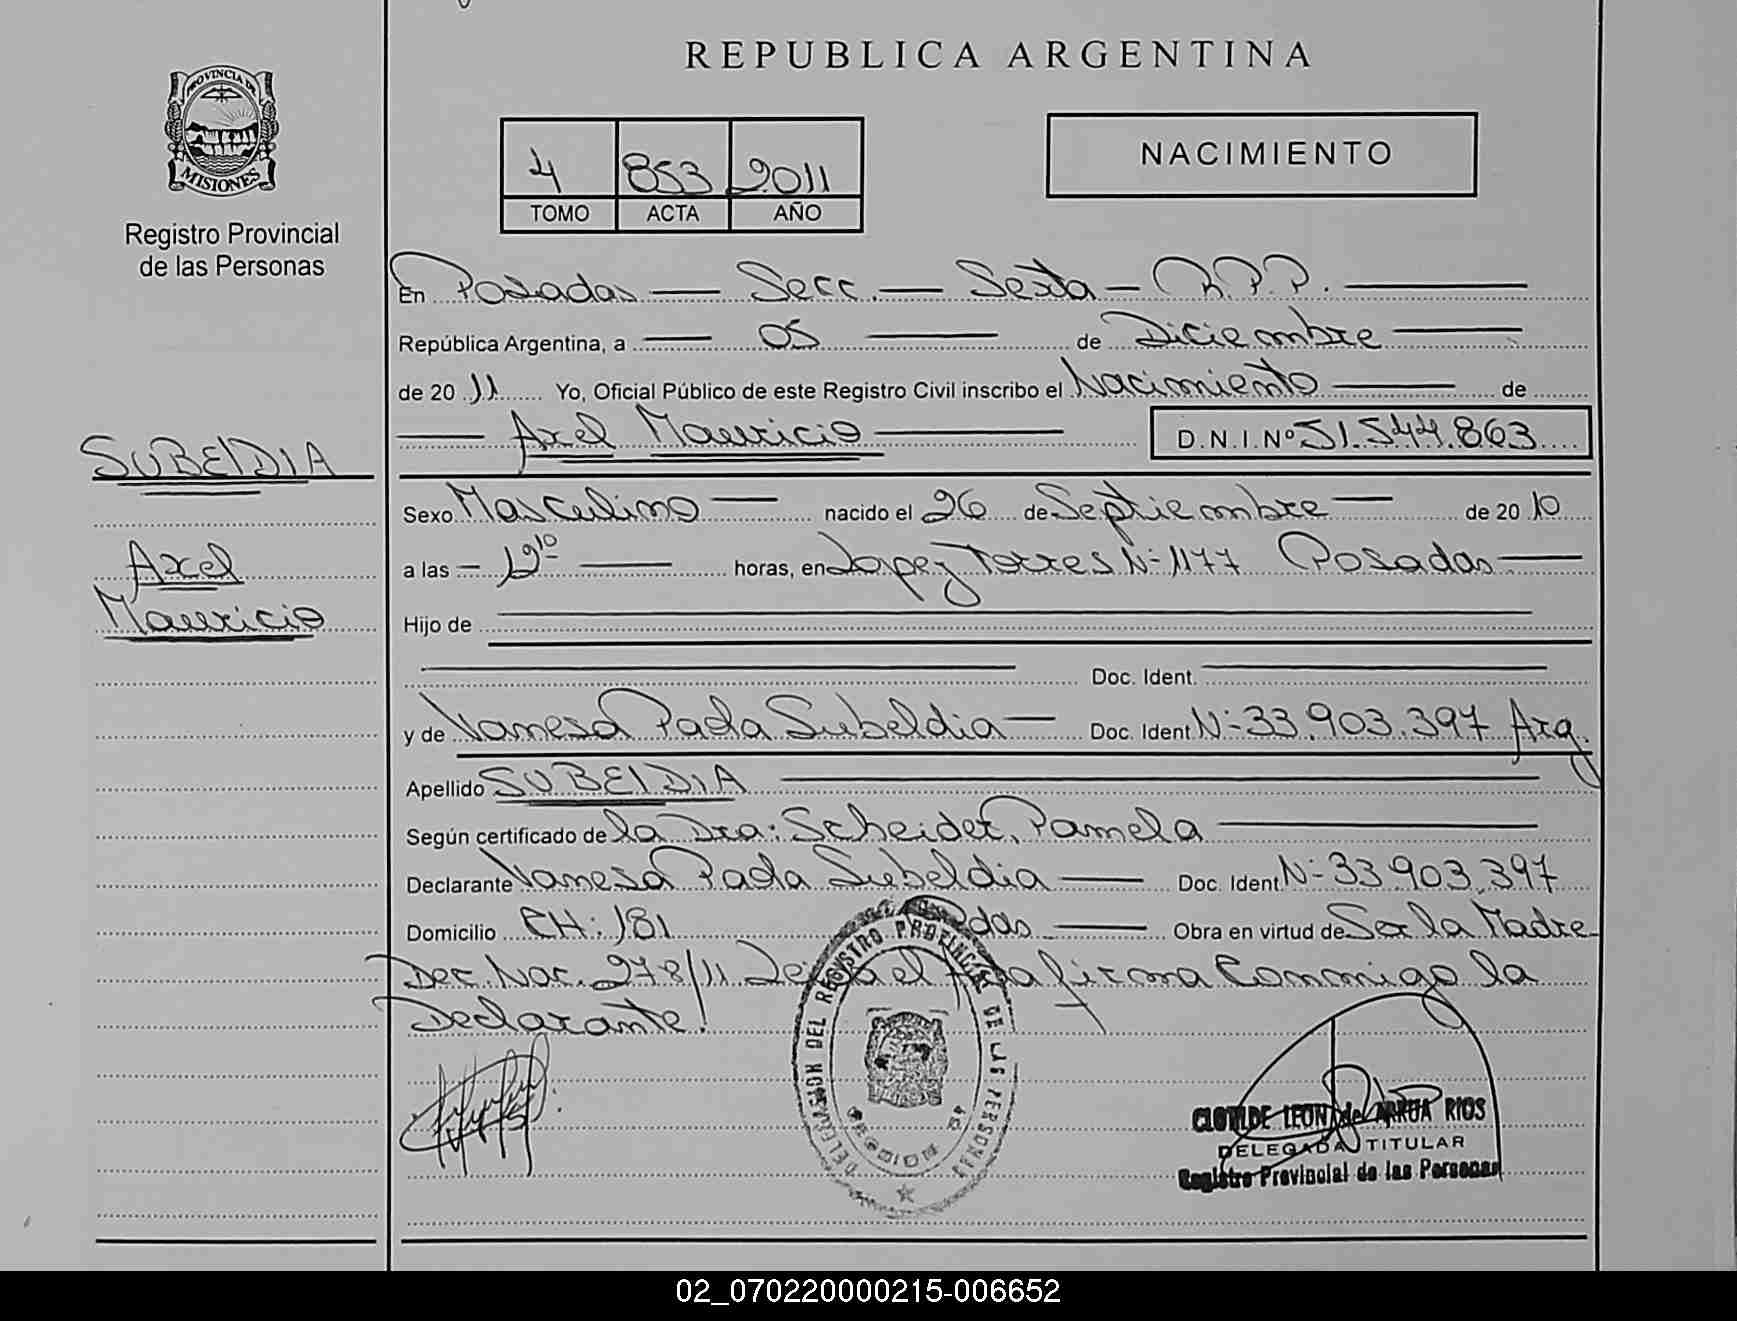 REPUBLICA ARGENTINA
PROVINCIA DE
MISIONES
Registro Provincial
de las Personas
4 853 2011
TOMO ACTA AÑO
NACIMIENTO
En Posadas — Secc. — Sexta — R.P.P.
República Argentina, a — 05 — de Diciembre
de 20 11 Yo, Oficial Público de este Registro Civil inscribo el Nacimiento — de
— Axel Mauricio — D.N.I. Nº 51.544.863
SUBELDIA
Axel
Mauricio
Sexo Masculino — nacido el 26 de Septiembre — de 20 10
a las — 12 10 — horas, en Lopez Torres Nº 1177 Posadas —
Hijo de
Doc. Ident.
y de Vanesa Paola Subeldia — Doc. Ident Nº 33.903.397 Arg.
Apellido SUBELDIA
Según certificado de la Dra: Scheider, Pamela
Declarante Vanesa Paola Subeldia — Doc. Ident. Nº 33.903.397
Domicilio CH: 181 — Obra en virtud de Ser la Madre
Dec. Nac. 278/11 el firma Conmigo la
Declarante!
DELEGACION DEL REGISTRO PROVINCIAL DE LAS PERSONAS
CLOTILDE LEON de ARRUA RIOS
DELEGADA TITULAR
Registro Provincial de las Personas
02_070220000215-006652